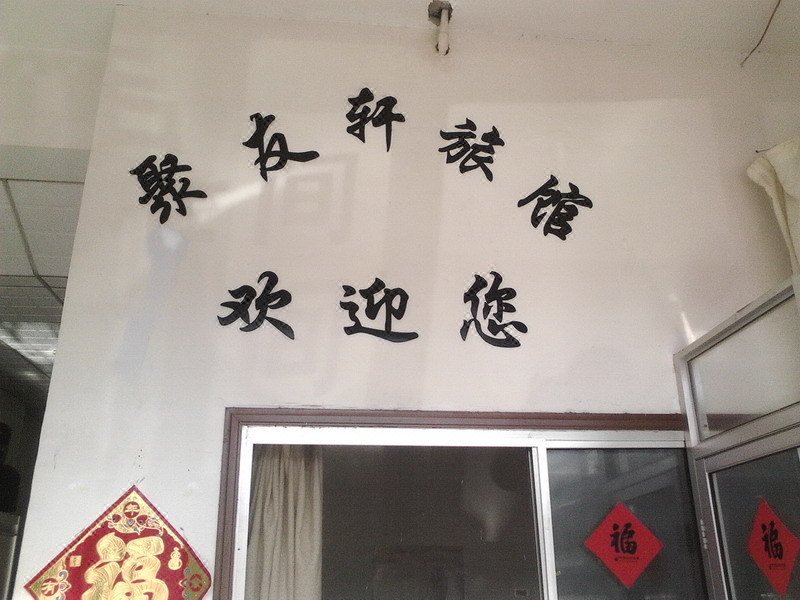 聚友轩旅馆
欢迎您
福
福
福